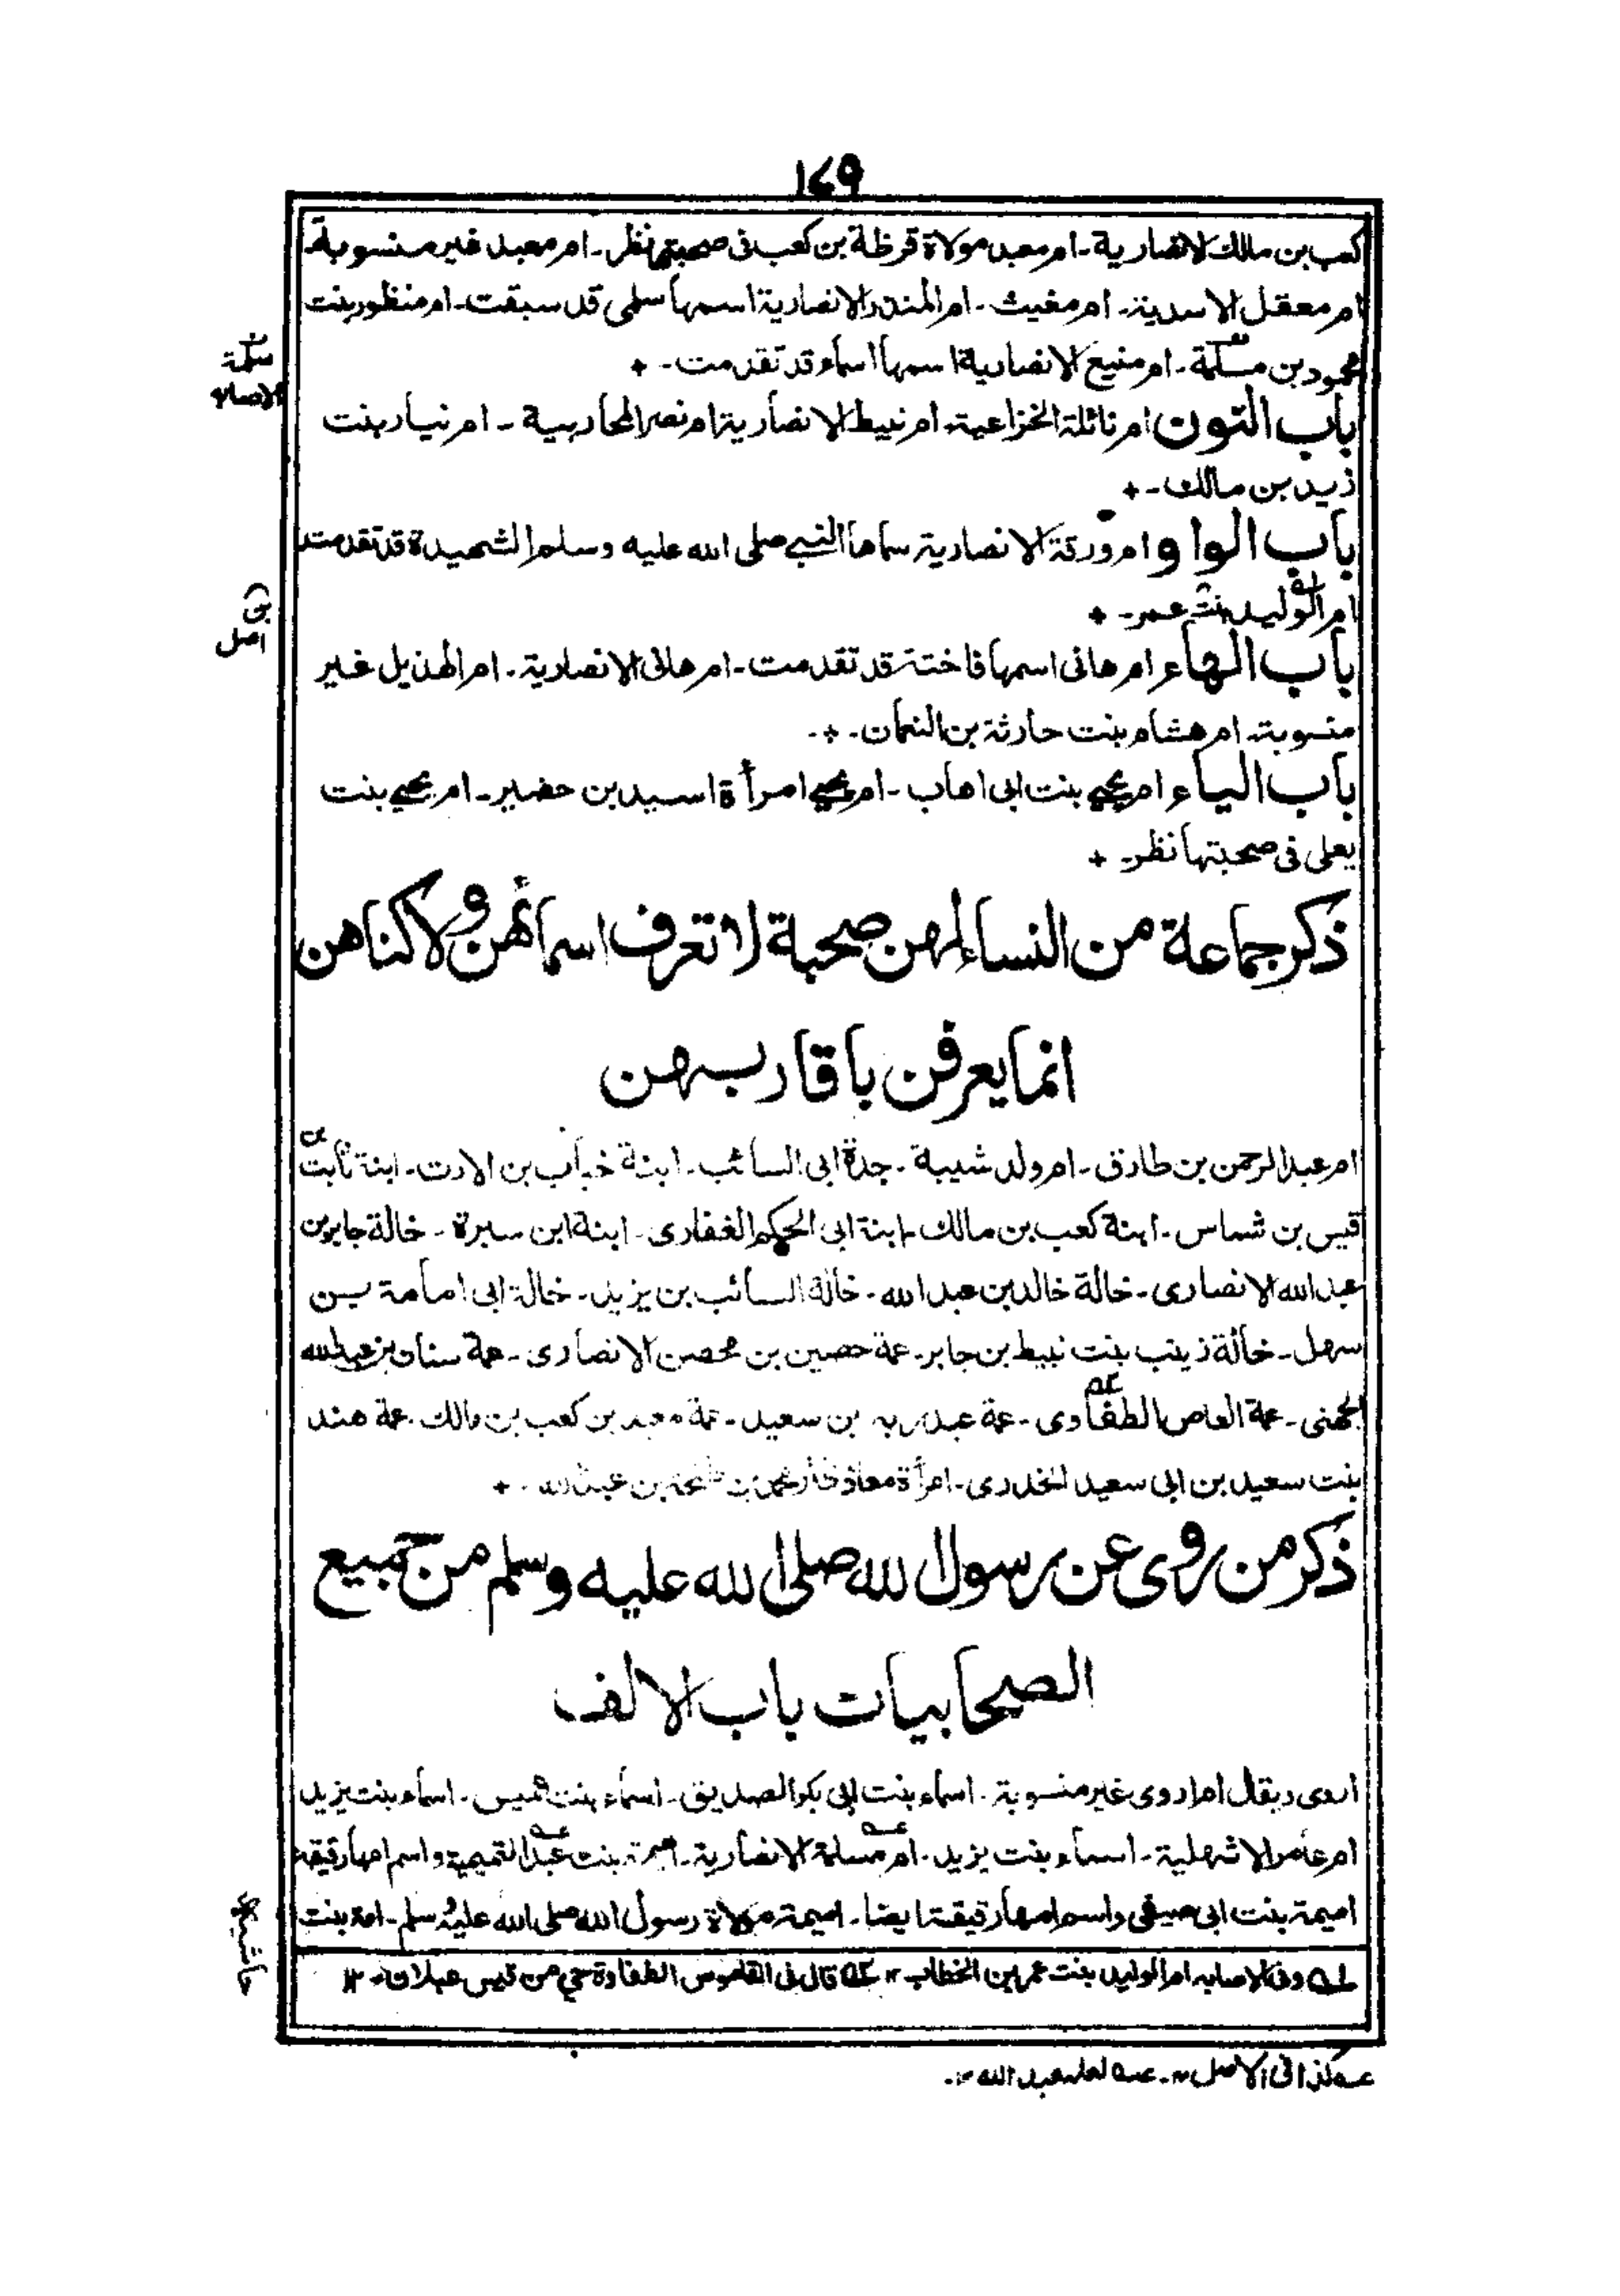 ١٧٩
كعب بن مالك الانصارية۔ ام معبد مولاة قرظة بن كعب فى صحبتها نظر۔ ام معبد غير منسوبة۔
ام معقل الاسدية۔ ام مغيث۔ ام المنذر الانصارية اسمها سلمى قد سبقت۔ ام منظور بنت
محمود بن مسلمة۔ ام منيع الانصارية اسمها اسماء قد تقدمت۔ +
باب النون ام نائلة الخزاعية۔ ام نبيط الانصارية ام نصر المحاربية۔ ام نيار بنت
زيد بن مالك۔ +
باب الواو ام ورقة الانصارية سماها النبي صلى الله عليه وسلم الشهيدة قد تقدمت
ام الوليد بنت عمر۔ +
باب الهاء ام هانى اسمها فاختة قد تقدمت۔ ام هانى الانصارية۔ ام الهذيل غير
منسوبة۔ ام هشام بنت حارثة بن النعمان۔ +۔
باب الياء ام يحيى بنت ابى اهاب۔ ام يحيى امرأة اسيد بن حضير۔ ام يحيى بنت
يعلى فى صحبتها نظر۔ +
ذكر جماعة من النساء لهن صحبة لا تعرف اسمائهن ولا كناهن
انما يعرفن باقاربهن
ام عبد الرحمن بن طارق۔ ام ولد شيبة۔ جدة ابى السائب۔ ابنة خباب بن الارت۔ ابنة ثابت بن
قيس بن شماس۔ ابنة كعب بن مالك۔ ابنة ابى الحكم الغفارى۔ ابنة ابن سبرة۔ خالة جابر بن
عبد الله الانصارى۔ خالة خالد بن عبد الله۔ خالة السائب بن يزيد۔ خالة ابى امامة بن
سهل۔ خالة زينب بنت نبيط بن جابر۔ عمة حصين بن محصن الانصارى۔ عمة سنان بن عبد الله
الجهنى۔ عمة العاص الطفاوى۔ عمة عبد ربه بن سعيد۔ عمة معبد بن كعب بن مالك۔ عمة هند
بنت سعيد بن ابى سعيد الخدرى۔ امرأة معاذ بن عبد الله۔ +
ذكر من روى عن رسول الله صلى الله عليه وسلم من جميع
الصحابيات باب الالف
اروى ويقال ام اروى غير منسوبة۔ اسماء بنت ابى بكر الصديق۔ اسماء بنت عميس۔ اسماء بنت يزيد
ام عامر الاشهلية۔ اسماء بنت يزيد۔ ام مسلمة الانصارية۔ اميمة بنت عبد التميمية واسم امها رقيقة
اميمة بنت ابى صيفى واسم امها رقيقة ايضا۔ اميمة مولاة رسول الله صلى الله عليه وسلم۔ امة بنت
وفى الاصابه ام الوليد بنت عمر بن الخطاب ۱۲ قال فى القاموس الطفاوة حي من قيس عيلان۔ ۱۲
عه كذا فى الاصل ۱۲۔ عه لعله عبد الله ۱۲۔
سلمة
الاصابة
اصل